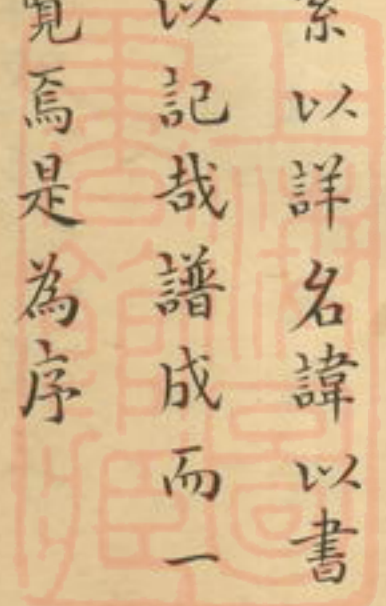 系以詳名諱以書
以記哉譜成而一
覽焉是為序